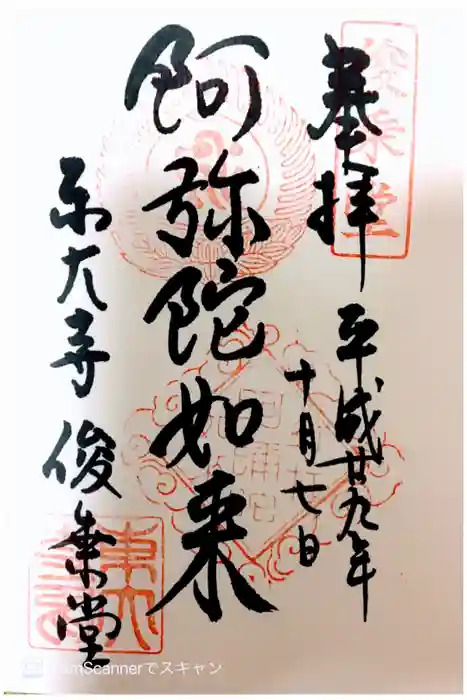 奉拝
平成廿九年
十月七日
阿弥陀如来
東大寺 俊乗堂
俊乗堂
東大
CamScannerでスキャン